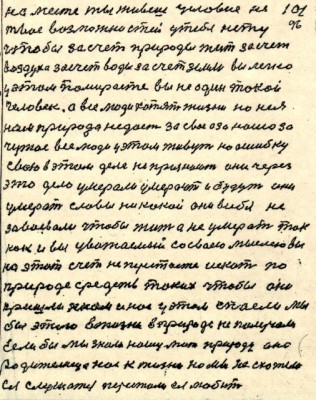 на месте ты живеш условие не 101
твое возможностей у тебя нету 96
чтобы за счет природы жит за счет
воздуха за счет воды за счет земли вы легко
у этом помираете вы не один такой
человек. а все люди хотят жизни но не
нам природа не дает за свое а за нашо за
чужое все люди у этом живут но ошибку
свою в этом деле не признают они через
это дело умерали умерают и будут они
умерат славы никакой они себя не
завоевали чтобы жит а не умерат так
как и вы уважаемый со своею мыслею вы
на этот счет не пустаете искат по
природе средств таких чтобы они
пришли к нам и нас у этом спасли мы
бы этого в жизни в природе не получали
если бы мы знали нашу мат природу она
родителница нас к жизни но мы не схотели
ея слушатся перестали ея любит